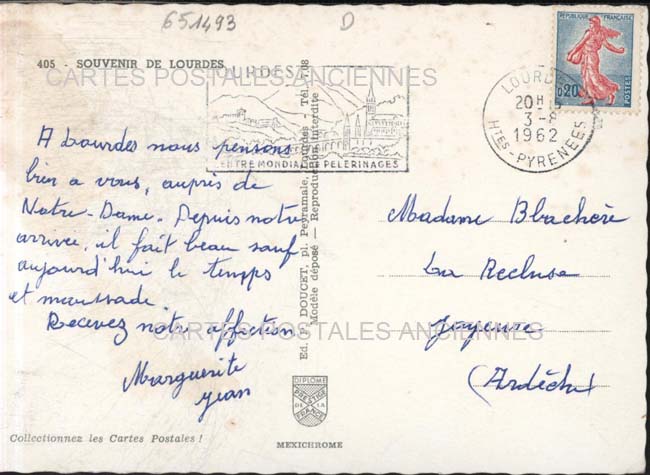 651493
D
405 - SOUVENIR DE LOURDES
CARTES POSTALES ANCIENNES
A Lourdes nous pensons
bien a vous, auprès de
Notre-Dame. Depuis notre
arrivée, il fait beau sauf
aujourd'hui le temps
et maussade.
Recevez notre affection
Marguerite
Jean
Collectionnez les Cartes Postales !
LOURDES
CENTRE MONDIAL PELERINAGES
Ed. P. DOUCET, pl. Peyramale, Lourdes - Tél. 7.08
Modèle déposé - Reproduction interdite
DIPLOME
PRESTIGE
DE LA
FRANCE
MEXICHROME
REPUBLIQUE FRANÇAISE
0,20
POSTES
LOURDES
20H15
3-8
1962
HTES-PYRENEES
Madame Blachère
La Recluse
Joyeuse
(Ardèche)
CARTES POSTALES ANCIENNES